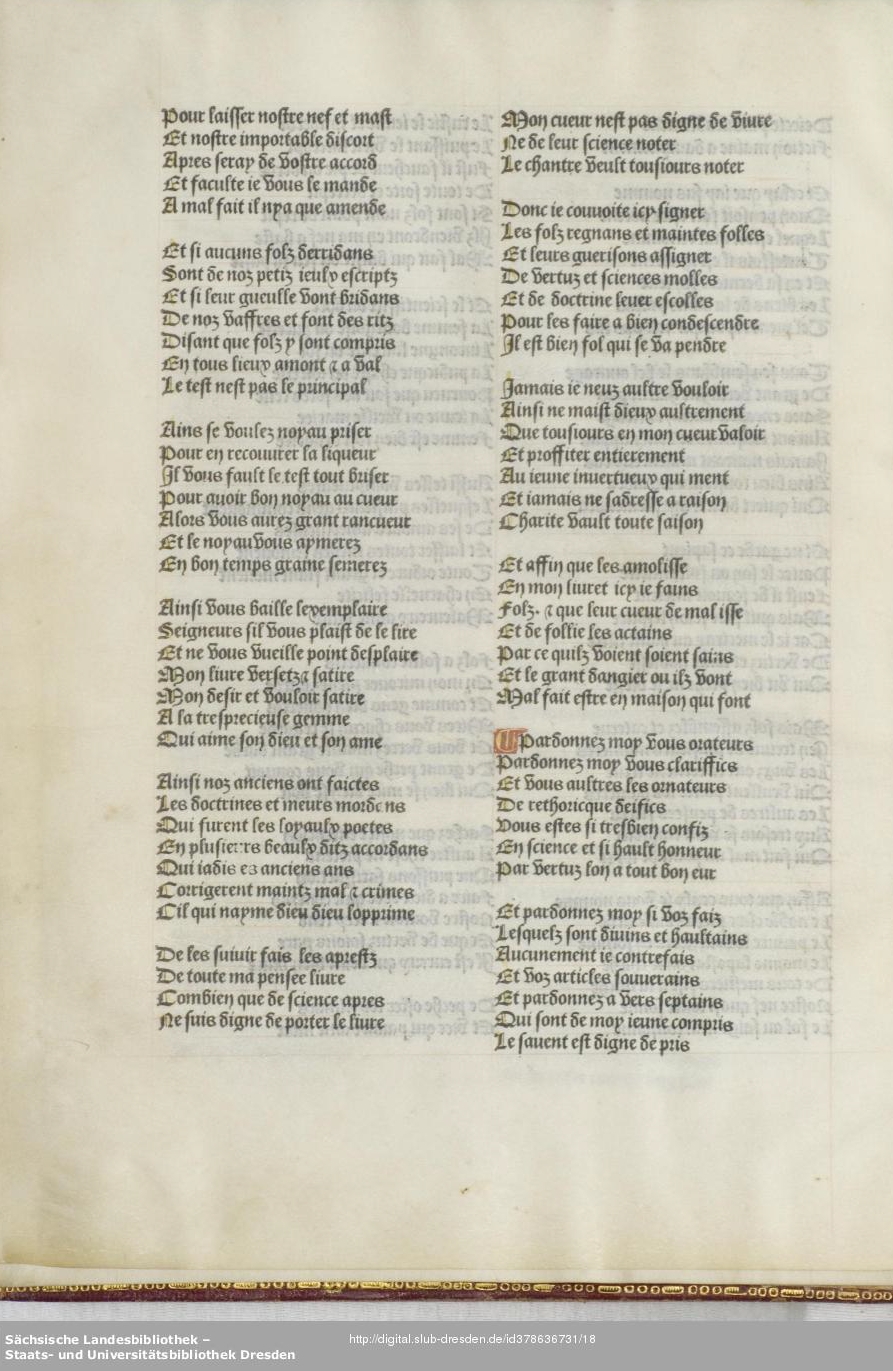 Pour laisser nostre nef et mast
Et nostre importable discort
Apres seray de vostre accord
Et faculte ie vous le mande
A mal fait il nya que amende
Et si aucuns folz derridans
Sont de noz petiz ieulx escriptz
Et si leur gueulle vont bridans
De noz baffres et font des ritz
Disant que folz y sont compris
En tous lieux amont ⁊ a val
Le test nest pas le principal
Ains se voulez noyau priser
Pour en recouurer la liqueur
Il vous fault le test tout briser
Pour auoir bon noyau au cueur
Alors vous aurez grant rancueur
Et le noyau vous aymerez
En bon temps graine semerez
Ainsi vous baille lexemplaire
Seigneurs sil vous plaist de le lire
Et ne vous vueille point desplaire
Mon liure versetz ⁊ satire
Mon desir et vouloir satire
A la tresprecieuse gemme
Qui aime son dieu et son ame
Ainsi noz anciens ont faictes
Les doctrines et meurs mordens
Qui furent les loyaulx poetes
En plusieurs beaulx ditz accordans
Qui iadis es anciens ans
Corrigerent maintz mal ⁊ crimes
Cil qui nayme dieu dieu lopprime
De les suiuir fais les aprestz
De toute ma pensee liure
Combien que de science apres
Ne suis digne de porter le liure
Mon cueur nest pas digne de viure
Ne de leur science noter
Le chantre veult tousiours noter
Donc ie couuoite icy signer
Les folz regnans et maintes folles
Et leurs guerisons assigner
De vertuz et sciences molles
Et de doctrine leuer escolles
Pour les faire a bien condescendre
Il est bien fol qui se va pendre
Jamais ie neuz aultre vouloir
Ainsi ne maist dieux aultrement
Que tousiours en mon cueur valoir
Et proffiter entierement
Au ieune invertueux qui ment
Et iamais ne sadresse a raison
Charite vault toute saison
Et affin que les amolisse
En mon liuret icy ie fains
Folz. ⁊ que leur cueur de mal isse
Et de follie les actains
Par ce quilz voient soient sains
Et le grant dangier ou ilz vont
Mal fait estre en maison qui font
Pardonnez moy vous orateurs
Pardonnez moy vous clariffics
Et vous aultres les ornateurs
De rethoricque deifics
Vous estes si tresbien confiz
En science et si hault honneur
Par vertuz lon a tout bon eur
Et pardonnez moy si voz faiz
Lesquelz sont diuins et haultains
Aucunement ie contrefais
Et voz articles souuerains
Et pardonnez a vers septains
Qui sont de moy ieune compris
Le sauent est digne de pris
Sächsische Landesbibliothek –
Staats- und Universitätsbibliothek Dresden
http://digital.slub-dresden.de/id378636731/18